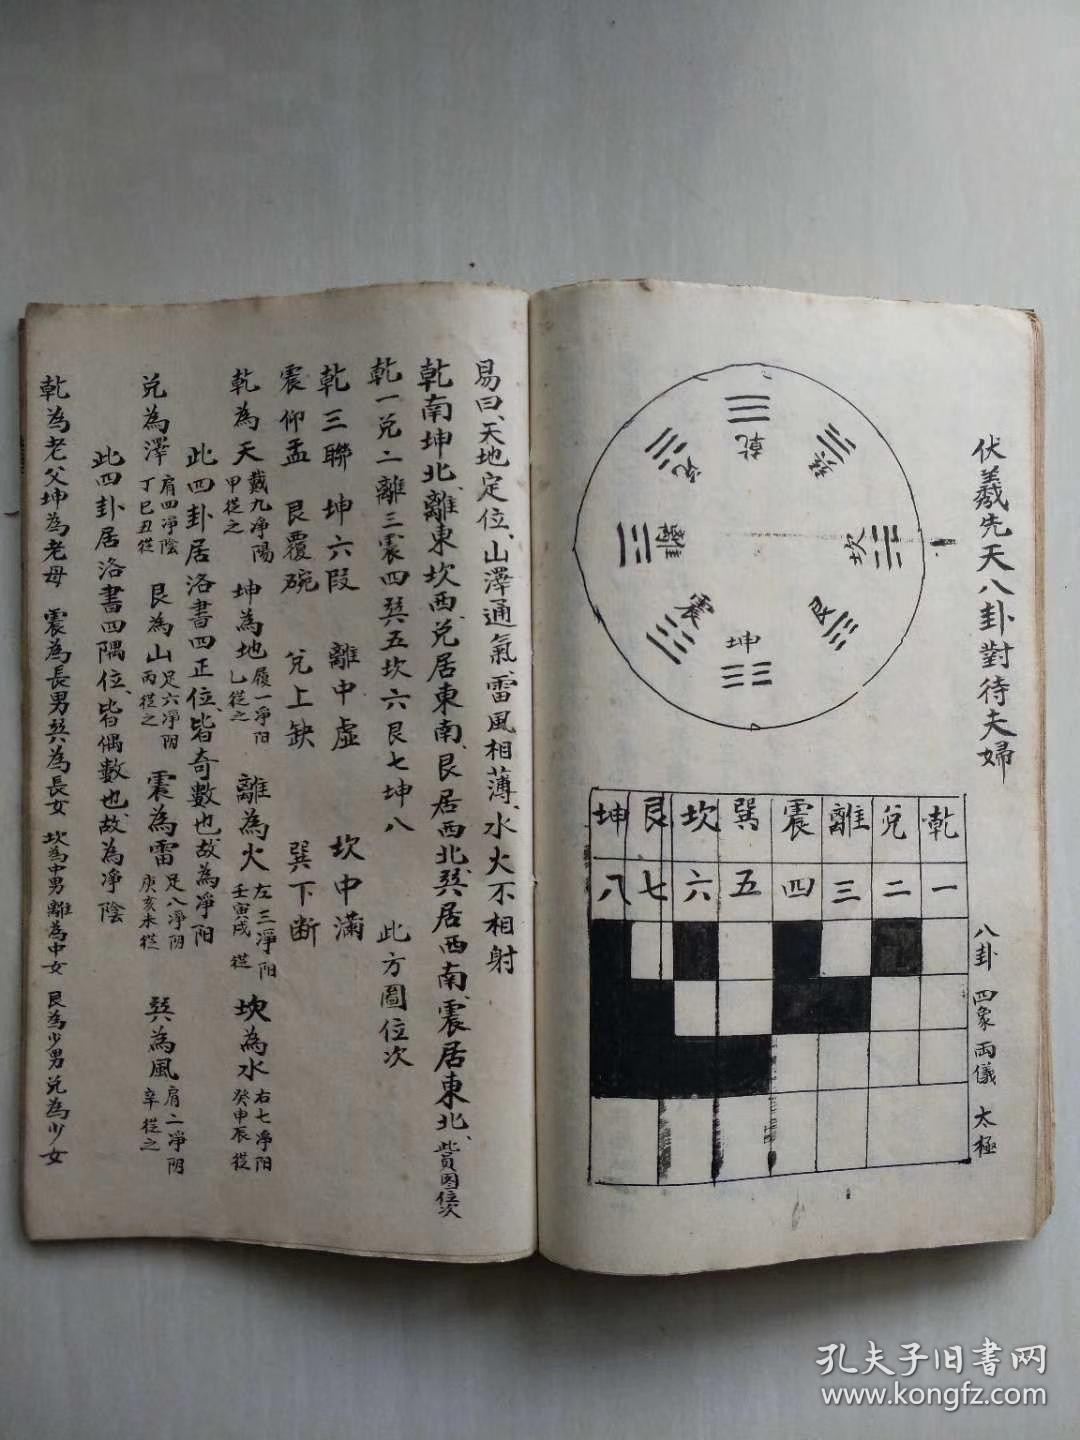 伏羲先天八卦對待夫婦
乾
兌
離
震
巽
坎
艮
坤
乾 兌 離 震 巽 坎 艮 坤
一 二 三 四 五 六 七 八
八卦 四象 両儀 太極
易曰、天地定位、山澤通氣、雷風相薄、水火不相射
乾南坤北、離東坎西、兌居東南、艮居西北、巽居西南、震居東北、此員図位次
乾一兌二離三震四巽五坎六艮七坤八 此方圖位次
乾三聯 坤六段 離中虛 坎中滿
震仰盂 艮覆碗 兌上缺 巽下断
乾為天 戴九净陽 甲從之 坤為地 履一净阳 乙從之 離為火 左三淨阳 壬寅戌從 坎為水 右七净阳 癸申辰從
此四卦居洛書四正位、皆奇數也故為净阳
兌為澤 肩四净陰 丁巳丑從 艮為山 足六净阴 丙從之 震為雷 足八净阴 庚亥未從 巽為風 肩二净阴 辛從之
此四卦居洛書四隅位、皆偶數也、故為净陰
乾為老父坤為老母 震為長男巽為長女 坎為中男離為中女 艮為少男兌為少女
孔夫子旧書网
www.kongfz.com